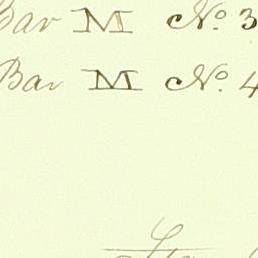 Bar M c No. 3
Bar M c No. 4